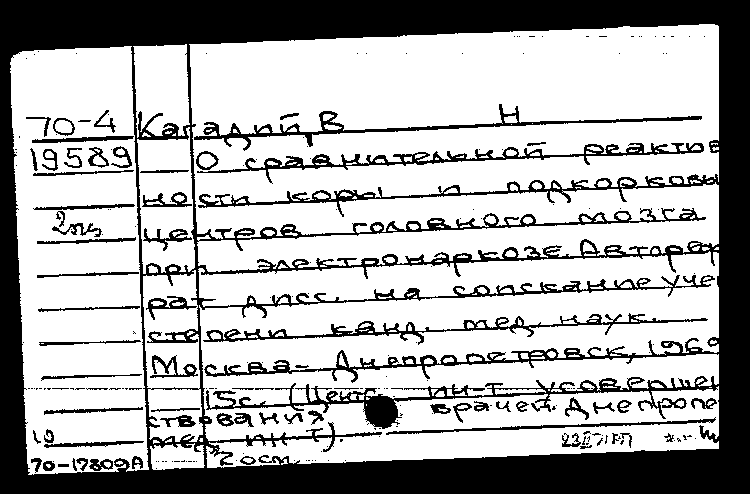 70-4 Кагадий, В Н
19589 О сравнительной реактив
ности коры и подкорковы
2 экз центров головного мозга
при электронаркозе. Автореф
рат дисс. на соискание учен
степени канд. мед. наук.
Москва - Днепропетровск, 1969
15с. (Центр. ин-т усовершен
ствования врачей. Днепропе
мед. ин-т).
70-17809А 2 осн.